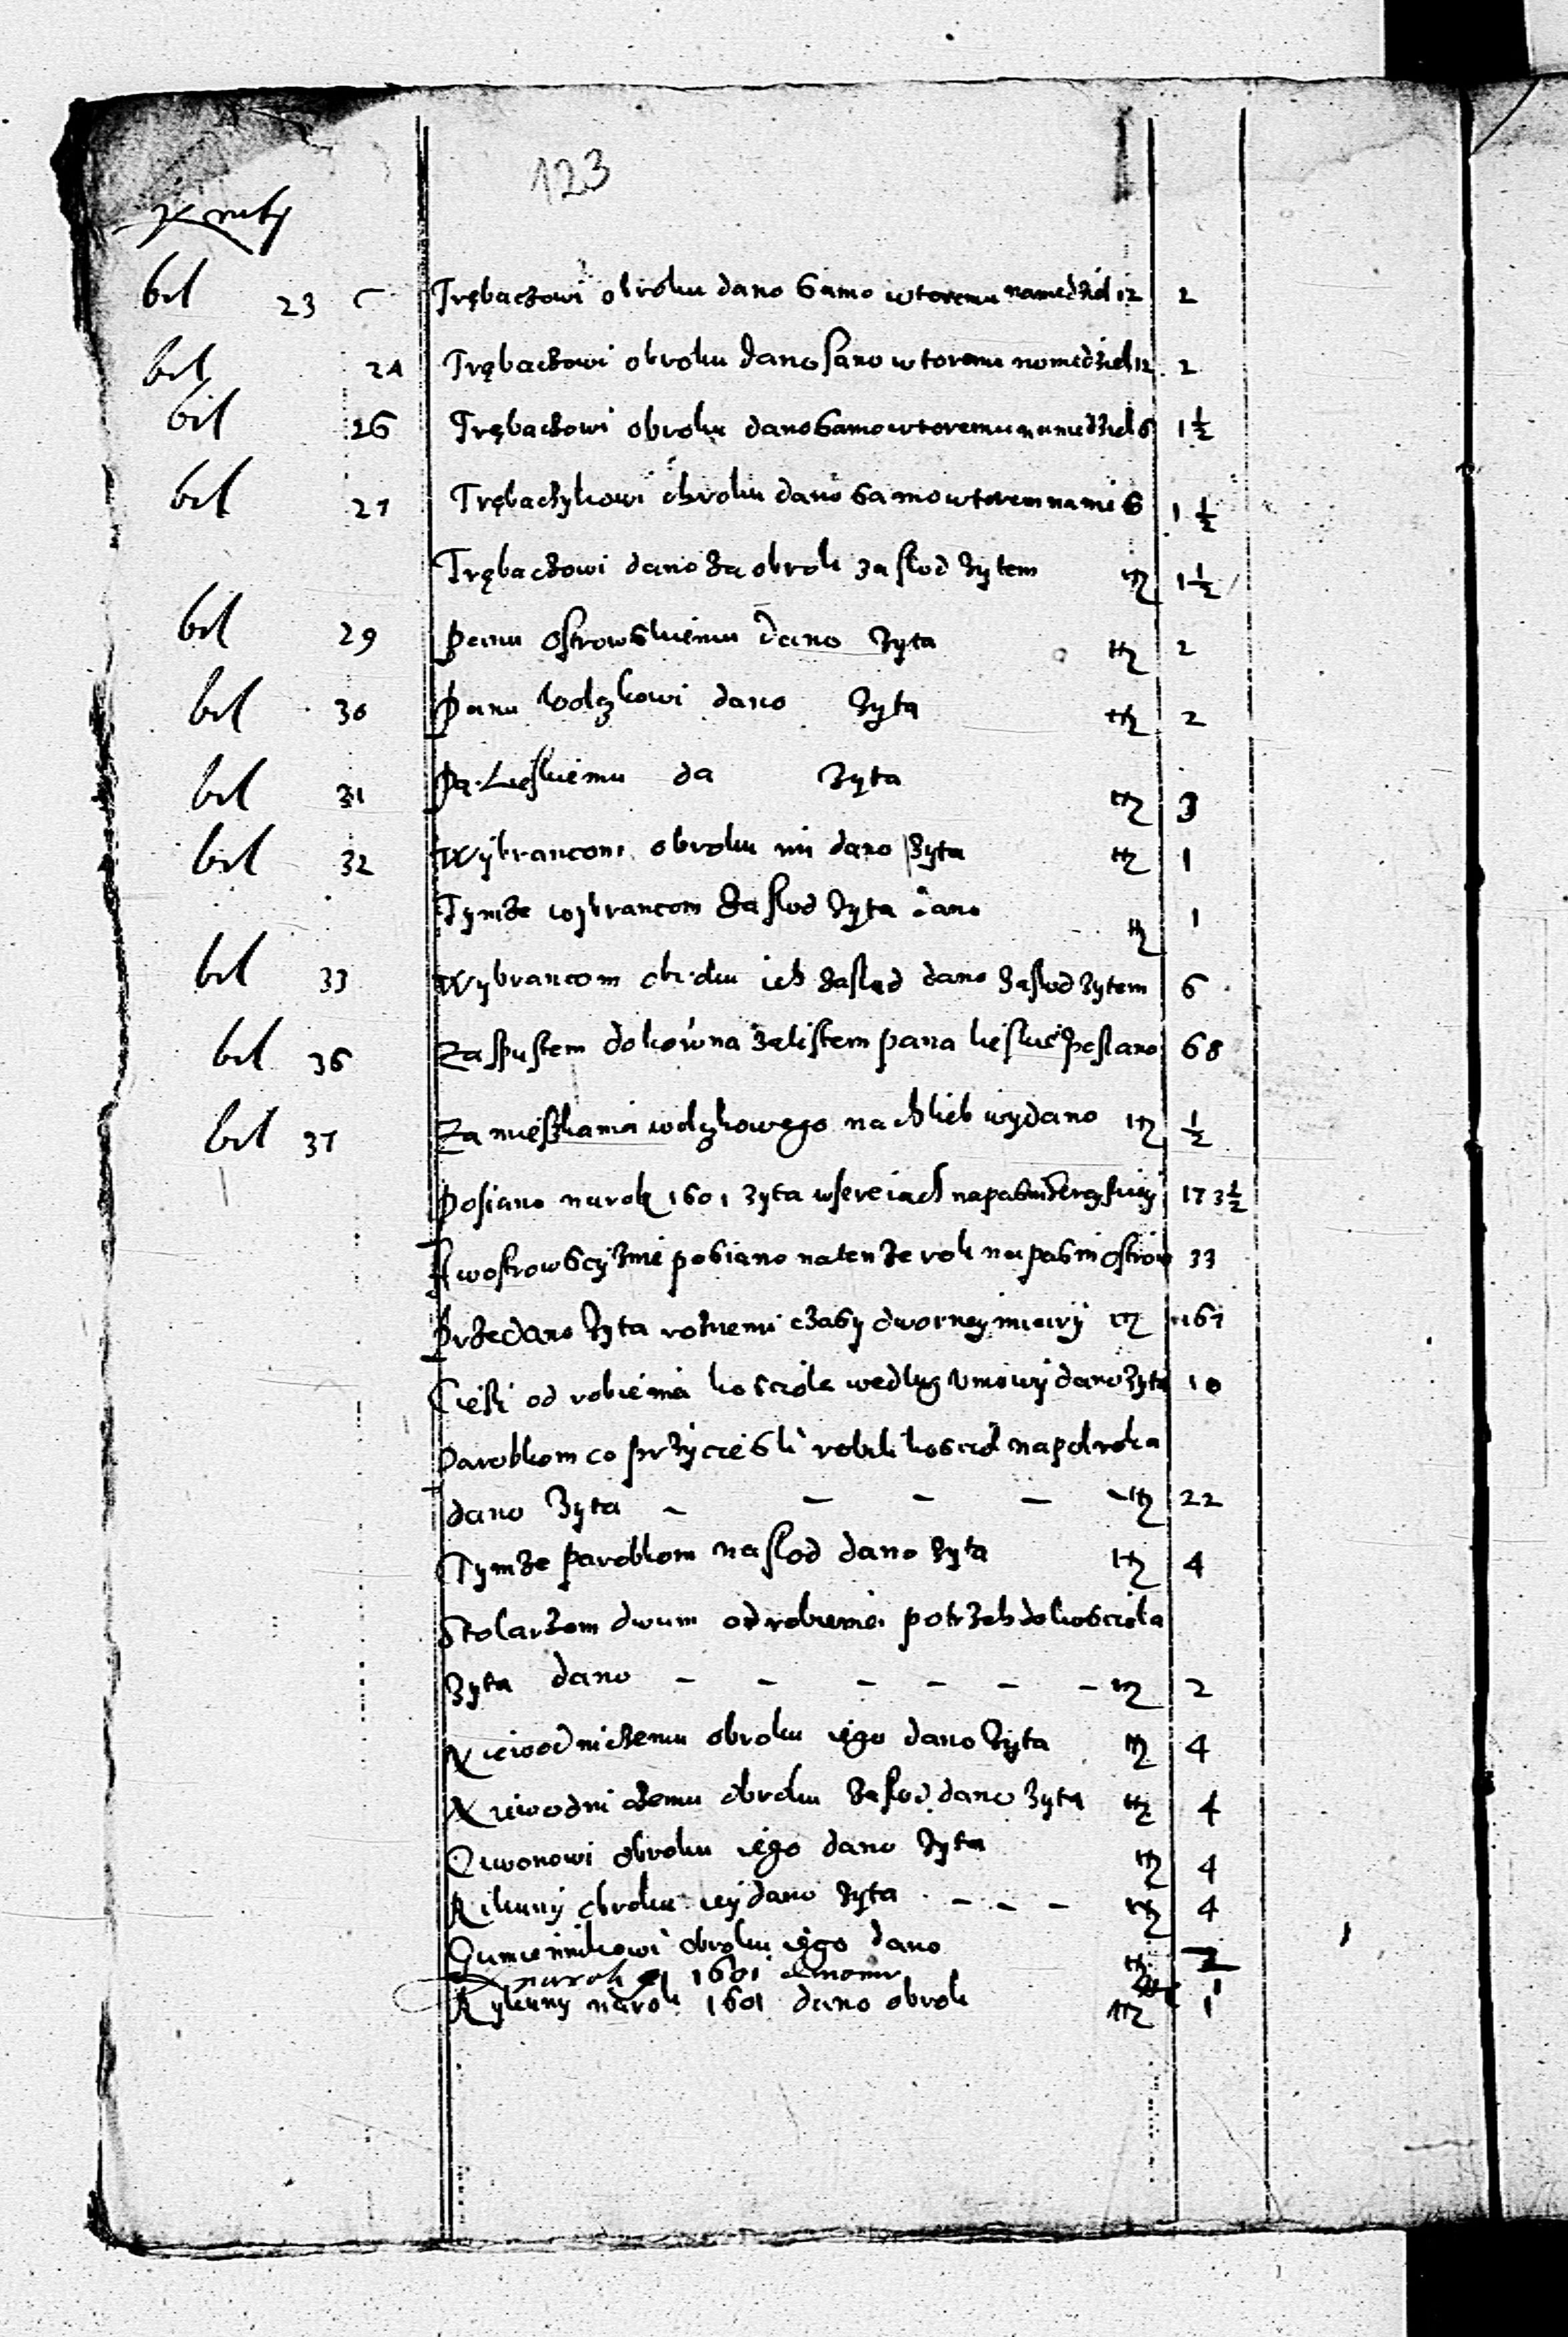 123
kwity
bil 23 Trębaczowi obroku dano samo wtoremu na niedziel 12 2
bil 24 Trębaczowi obroku dano samo wtoremu na niedziel 12 2
bil 26 Trębaczowi obroku dano samo wtoremu na niedziel 6 1 1/2
bil 27 Trębaczykowi obroku dano samo wtorem na nie 6 1 1/2
Trębaczowi dano za obrok za słod żytem 1 1/2
bil 29 Panu Ostrowskiemu dano żyta 2
bil 30 Panu Wolczkowi dano żyta 2
bil 31 Pa. Leskiemu da żyta 3
bil 32 Wybrancom obroku im dano żyta 1
Tymże wybrancom za słod żyta dano 1
bil 33 Wybrancom obroku ich dano za słod żytem 6
bil 36 Za spustem do kowna za listem pana leskie posłano 68
bil 37 Za mieszkania wolczkowego na chlieb wydano 1/2
Posiano na rok 1601 żyta w sereiach na pasni 173 1/2
A w ostrowsczyznie posiano na tenże rok na pasni ostrow 33
Przedano żyta roznemi czasy dworney miary 167
Ciesli od robienia kosciola wedlug umowy dano żyta 10
Parobkom co przy ciesli robili kosciol na pol roka
dano żyta - - - - - 22
Tymże parobkom na słod dano żyta 4
Stolarzom dwum od robienia potrzeb do kosciola
żyta dano - - - - - - 2
Niewodniczemu obroku iego dano żyta 4
Niewodniczemu obroku za słod dano żyta 4
Ciwonowi obroku iego dano żyta 4
Rikuny obroku iey dano żyta - - - 4
Gumiennikowi obroku iego dano 2
na rok 1601 1
Rykuny na rok 1601 dano obrok 1